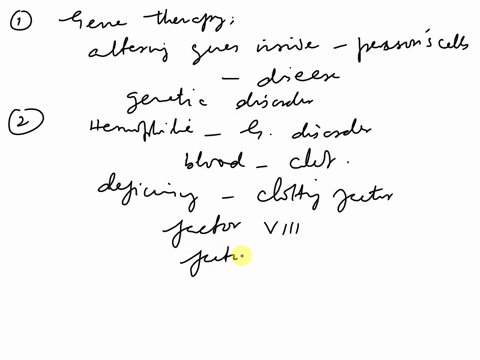 ① Gene therapy:
altering genes inside - person's cells
- disease
genetic disorder
② Hemophilia - G. disorder
blood - clot.
deficiency - clotting factor
factor VIII
fact